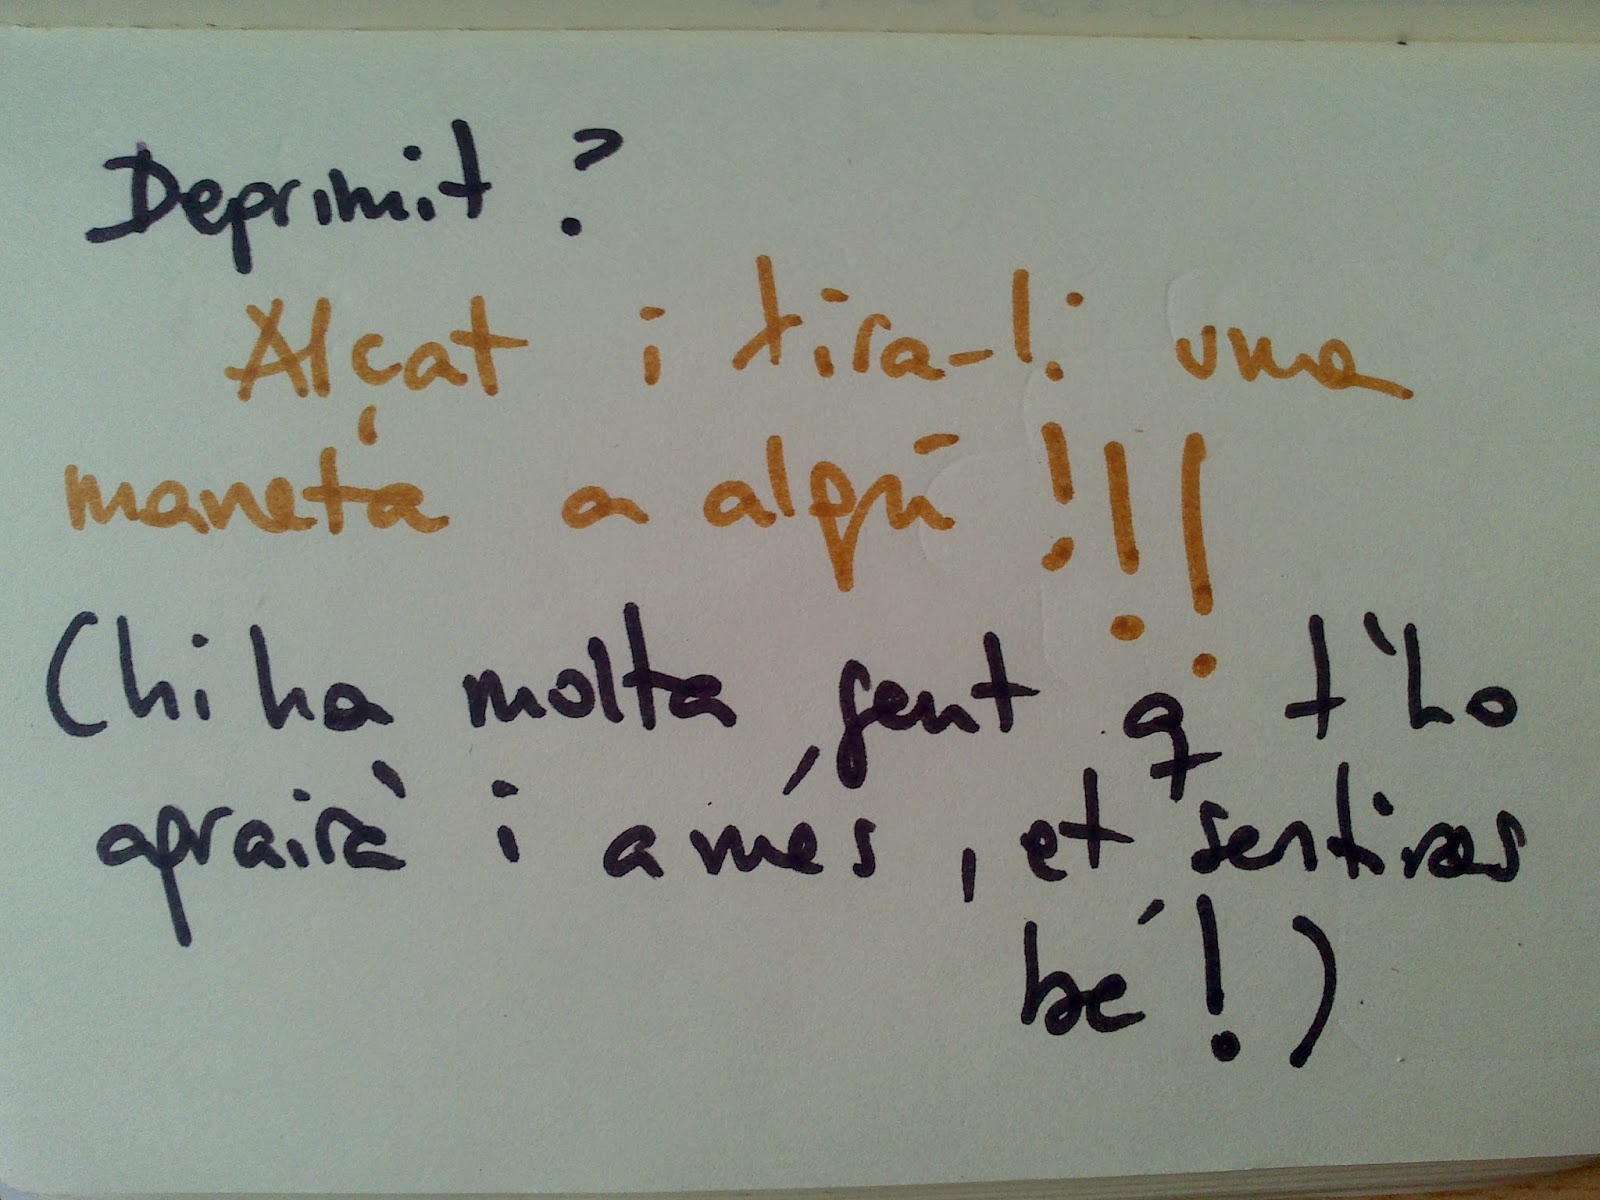 Deprimit ?
Alçat i tira-li una
maneta a algú !!!
(hi ha molta gent q t'ho
aprairà i a més, et sentiras
bé!)